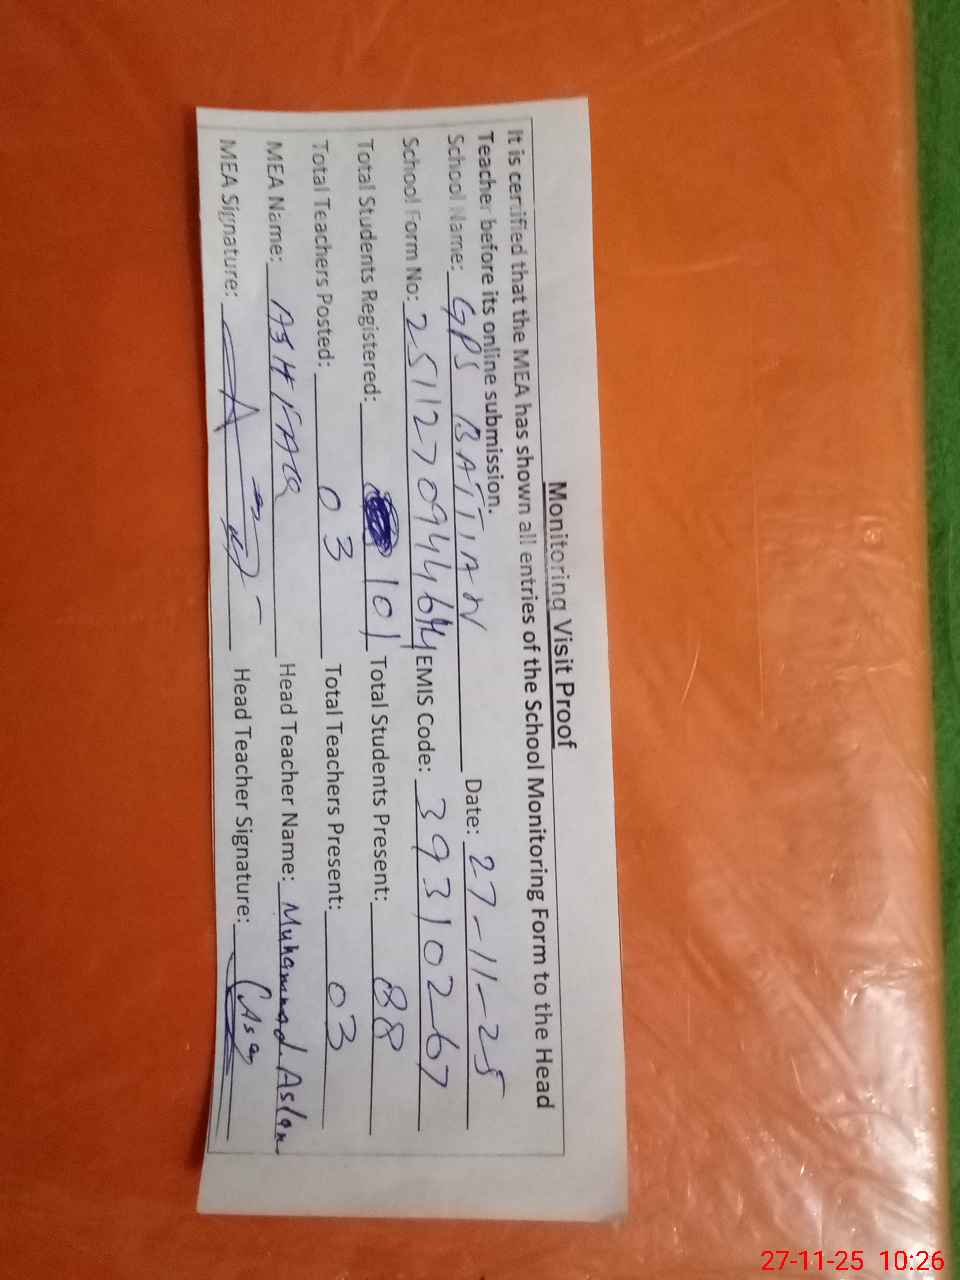 Monitoring Visit Proof
It is certified that the MEA has shown all entries of the School Monitoring Form to the Head
Teacher before its online submission.
School Name: GPS BATTIAN Date: 27-11-25
School Form No: 251127094464 EMIS Code: 39310267
Total Students Registered: 101 Total Students Present: 88
Total Teachers Posted: 03 Total Teachers Present: 03
MEA Name: ASHFAQ Head Teacher Name: Muhammad Aslam
MEA Signature: Head Teacher Signature:
27-11-25 10:26